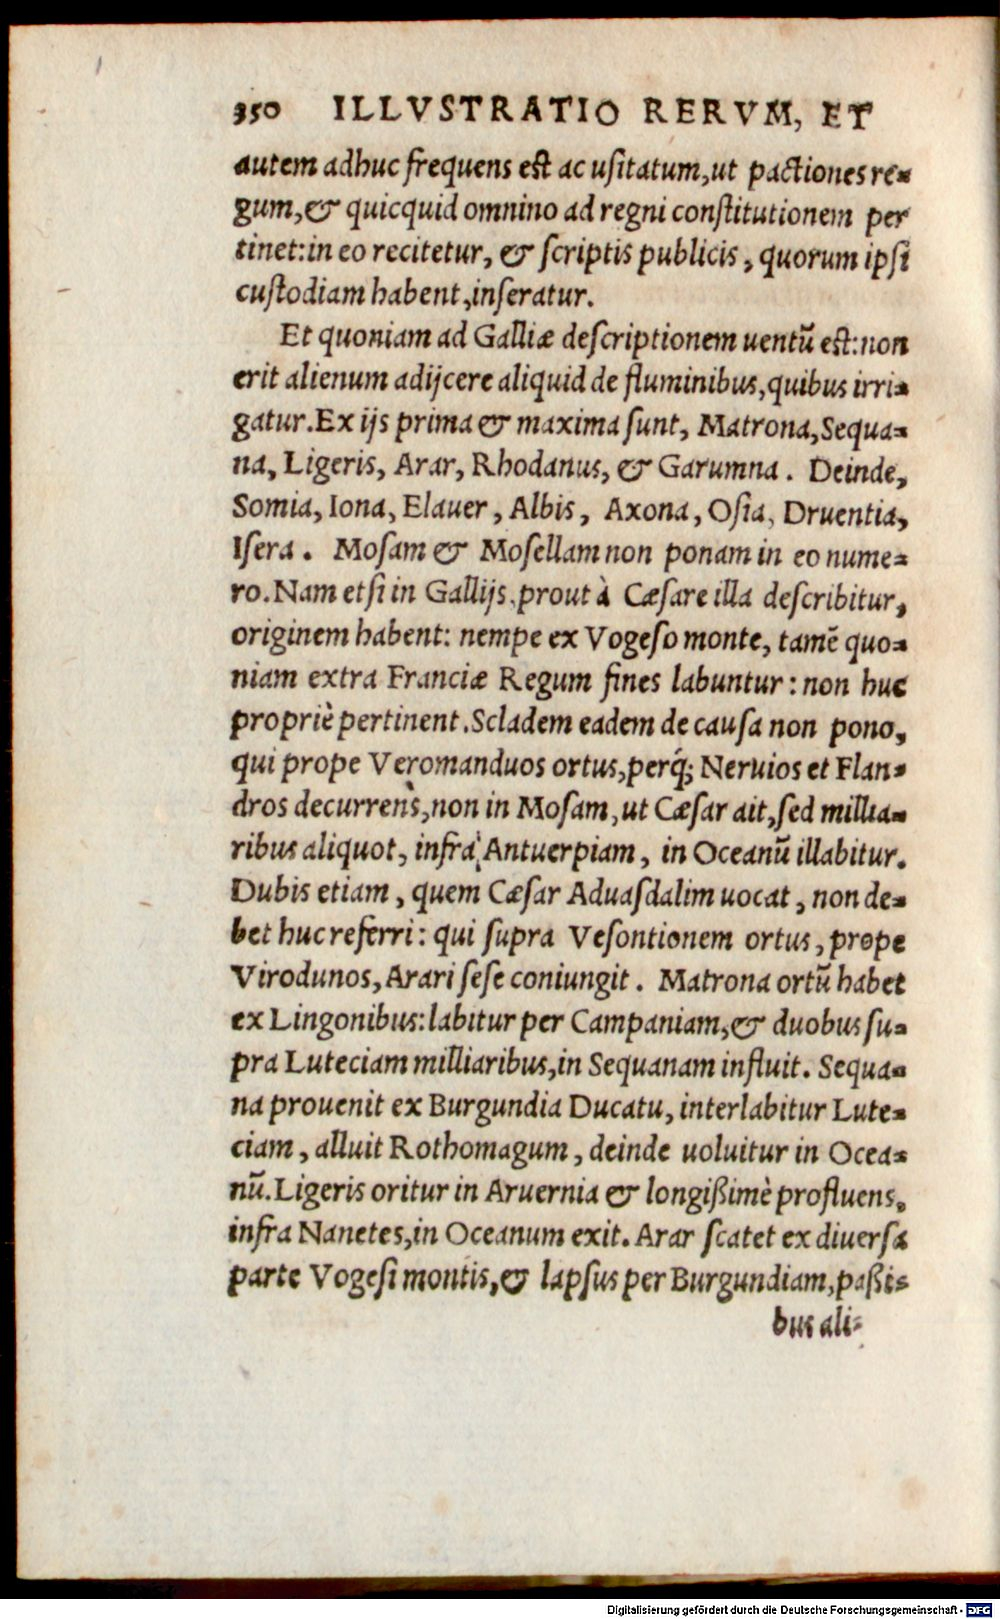 350 ILLVSTRATIO RERVM, ET
autem adhuc frequens est ac usitatum,ut pactiones re-
gum,& quicquid omnino ad regni constitutionem per
tinet:in eo recitetur, & scriptis publicis, quorum ipsi
custodiam habent,inseratur.
Et quoniam ad Galliæ descriptionem uentū est:non
erit alienum adijcere aliquid de fluminibus,quibus irri-
gatur.Ex ijs prima & maxima sunt, Matrona,Sequa-
na, Ligeris, Arar, Rhodanus, & Garumna. Deinde,
Somia, Iona, Elauer, Albis, Axona, Osia, Druentia,
Isera. Mosam & Mosellam non ponam in eo nume-
ro.Nam etsi in Gallijs,prout à Cæsare illa describitur,
originem habent: nempe ex Vogeso monte, tamē quo-
niam extra Franciæ Regum fines labuntur: non huc
propriè pertinent.Scladem eadem de causa non pono,
qui prope Veromanduos ortus,perq́; Neruios et Flan-
dros decurrens,non in Mosam,ut Cæsar ait,sed millia-
ribus aliquot, infrà Antuerpiam, in Oceanū illabitur.
Dubis etiam, quem Cæsar Aduasdalim uocat, non de-
bet huc referri: qui supra Vesontionem ortus, prope
Virodunos, Arari sese coniungit. Matrona ortū habet
ex Lingonibus:labitur per Campaniam,& duobus su-
pra Luteciam milliaribus,in Sequanam influit. Sequa-
na prouenit ex Burgundia Ducatu, interlabitur Lute-
ciam, alluit Rothomagum, deinde uoluitur in Ocea-
nū.Ligeris oritur in Aruernia & longißimè profluens,
infra Nanetes,in Oceanum exit. Arar scatet ex diuersa
parte Vogesi montis,& lapsus per Burgundiam,paßi-
bus ali-
Digitalisierung gefördert durch die Deutsche Forschungsgemeinschaft - DFG